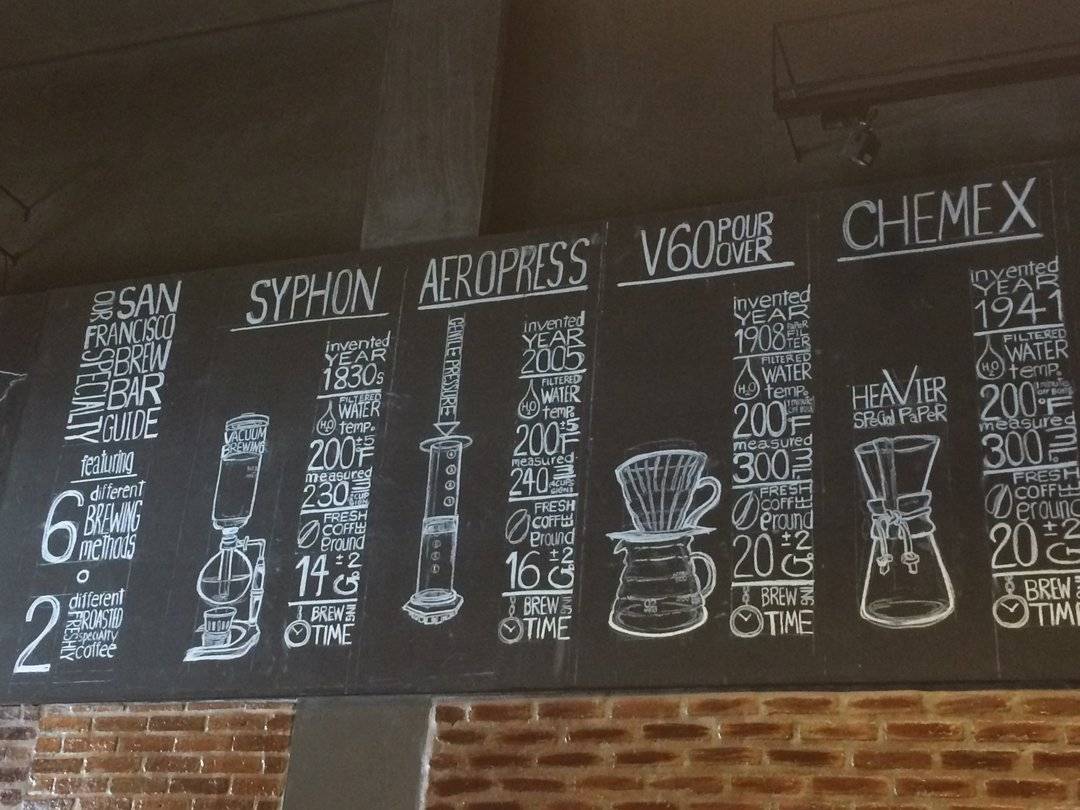 OUR SAN
FRANCISCO
SPECIALTY BREW
BAR
GUIDE
featuring
6 different
BREWING
methods
2 different
FRESHLY ROASTED
specialty
coffee
SYPHON
VACUUM
BREWING
invented
YEAR
1830s
FILTERED
H2O WATER
temp.
200±5°F
measured
230 mL
FRESH
COFFEE
Ground
14±2 G.
BREWING
TIME
AEROPRESS
GENTLE PRESSURE
invented
YEAR
2005
FILTERED
H2O WATER
temp.
200±5°F
measured
240 mL
FRESH
COFFEE
Ground
16±2 G.
BREWING
TIME
V60 POUR
OVER
invented
YEAR
1908 PAPER FILTER
FILTERED
H2O WATER
temp.
200°F
measured
300 mL
FRESH
COFFEE
Ground
20±2 G.
BREWING
TIME
CHEMEX
HEAVIER
SPECIAL PAPER
invented
YEAR
1941
FILTERED
H2O WATER
temp.
200°F
measured
300 mL
FRESH
COFFEE
Ground
20±2 G.
BREWING
TIME